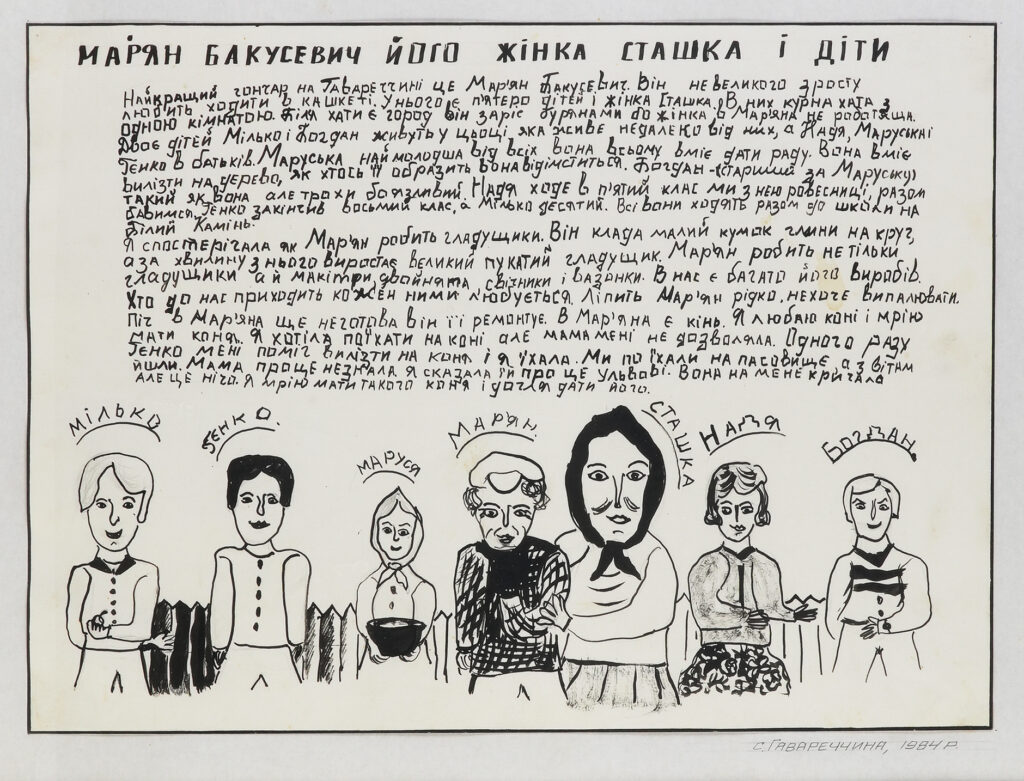 МАР'ЯН БАКУСЕВИЧ ЙОГО ЖІНКА СТАШКА І ДІТИ
Найкращий гончар на Гавареччині це Мар'ян Бакусевич. Він невеликого зросту
любить ходити в кашкеті. У нього є п'ятеро дітей і жінка Сташка. В них курна хата з
одною кімнатою. Біля хати є город він заріс бурянами бо жінка в Мар'яна не роботяща.
Двоє дітей Мілько і Богдан живуть у цьоці яка живе недалеко від них, а Надя, Маруська і
Ґенко в батьків. Маруська наймолодша від всіх вона всьому вміє дати раду. Вона вміє
вилізти на дерево, як хтось її образить вона відімститься. Богдан-(старший за Маруську)
такий як вона але трохи боязливий. Надя ходе в п'ятий клас ми з нею ровесниці, разом
бавимся. Ґенко закінчив восьмий клас, а Мілько десятий. Всі вони ходять разом до школи на
Білий Камінь.
Я спостерігала як Мар'ян робить гладущики. Він клада малий кумок глини на круг,
а за хвилину з нього виростає великий пукатий гладущик. Мар'ян робить не тільки
гладущики а й макітри, двойнята, свічники і вазонки. В нас є багато його виробів.
Хто до нас приходить кожен ними любується. Ліпить Мар'ян рідко, нехоче випалювати.
Піч в Мар'яна ще неготова він її ремонтує. В Мар'яна є кінь. Я люблю коні і мрію
мати коня. Я хотіла поїхати на коні але мама мені не дозволяла. Одного разу
Ґенко мені поміг вилізти на коня і я їхала. Ми поїхали на пасовище, а з відтам
йшли. Мама про це незнала. Я сказала їй про це у Львові. Вона на мене кричала
але це нічо. Я мрію мати такого коня і доглядати його.
МІЛЬКО
ҐЕНКО.
МАРУСЯ
МАР'ЯН.
СТАШКА
НАДЯ
БОГДАН.
С. ГАВАРЕЧЧИНА, 1984 Р.